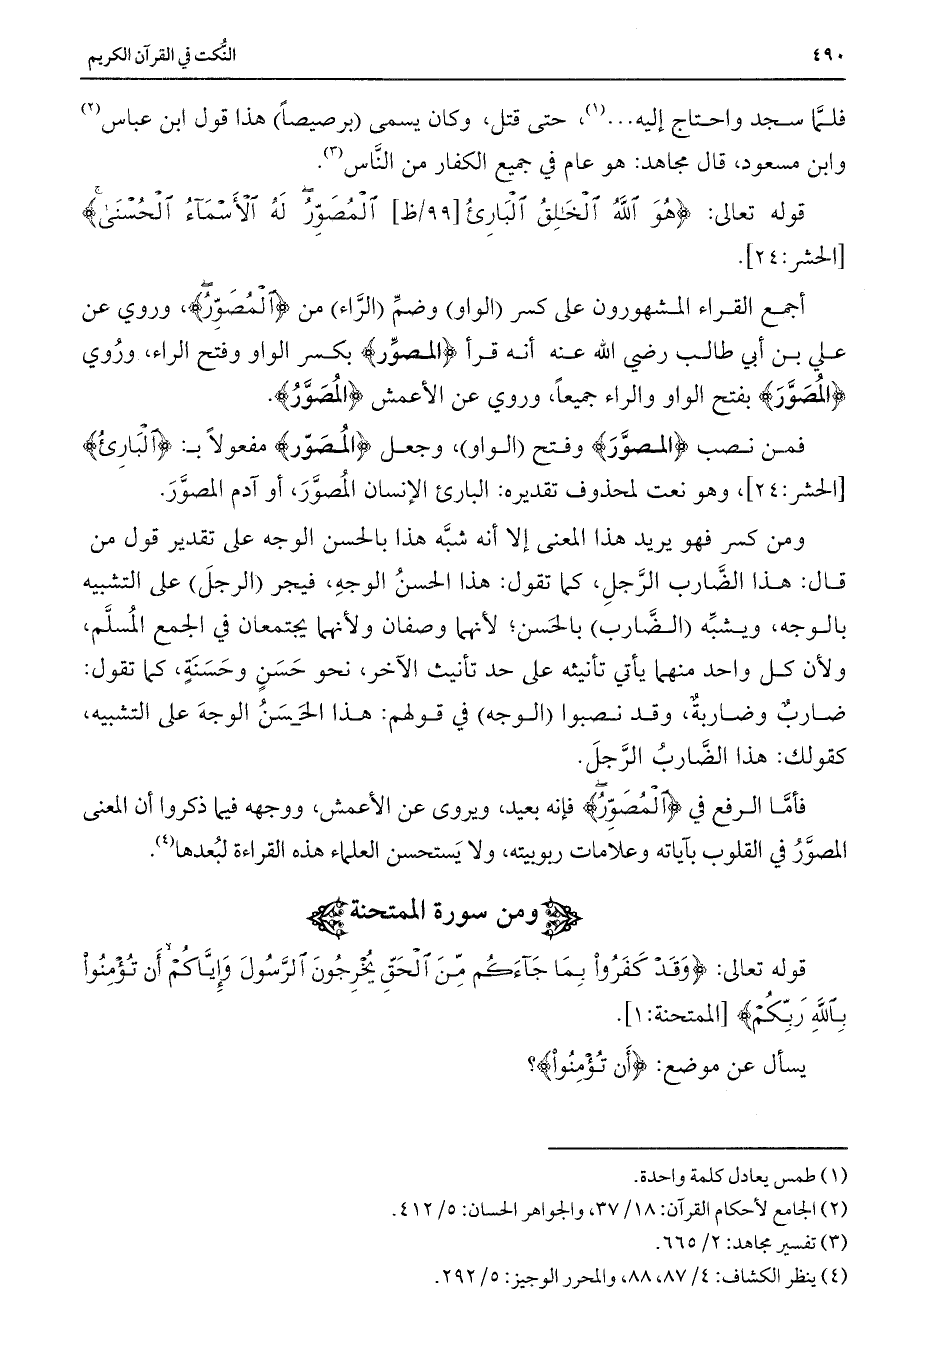 ٤٩٠ النُّكت في القرآن الكريم
فلمَّا سجد واحتاج إليه...(١)، حتى قتل، وكان يسمى (برصيصاً) هذا قول ابن عباس(٢)
وابن مسعود، قال مجاهد: هو عام في جميع الكفار من النَّاس(٣).
قوله تعالى: ﴿هُوَ ٱللَّهُ ٱلْخَٰلِقُ ٱلْبَارِئُ [٩٩/ظ] ٱلْمُصَوِّرُ ۖ لَهُ ٱلْأَسْمَآءُ ٱلْحُسْنَىٰ ۚ﴾
[الحشر:٢٤].
أجمع القراء المشهورون على كسر (الواو) وضمِّ (الرَّاء) من ﴿ٱلْمُصَوِّرُ ۖ﴾، وروي عن
علي بن أبي طالب رضي الله عنه أنه قرأ ﴿المصوِّر﴾ بكسر الواو وفتح الراء، ورُوي
﴿المُصَوَّرَ﴾ بفتح الواو والراء جميعاً، وروي عن الأعمش ﴿المُصَوَّرُ﴾.
فمن نصب ﴿المصوَّرَ﴾ وفتح (الواو)، وجعل ﴿المُصَوّر﴾ مفعولاً بـ: ﴿ٱلْبَارِئُ﴾
[الحشر:٢٤]، وهو نعت لمحذوف تقديره: البارئ الإنسان المُصوَّرَ، أو آدم المصوَّرَ.
ومن كسر فهو يريد هذا المعنى إلا أنه شبَّه هذا بالحسن الوجه على تقدير قول من
قال: هذا الضَّارب الرَّجلِ، كما تقول: هذا الحسنُ الوجهِ، فيجر (الرجلَ) على التشبيه
بالوجه، ويشبِّه (الضَّارب) بالحَسن؛ لأنهما وصفان ولأنهما يجتمعان في الجمع المُسلَّم،
ولأن كل واحد منهما يأتي تأنيثه على حد تأنيث الآخر، نحو حَسَنٍ وحَسَنَةٍ، كما تقول:
ضاربٌ وضاربةٌ، وقد نصبوا (الوجه) في قولهم: هذا الحَسَنُ الوجهَ على التشبيه،
كقولك: هذا الضَّاربُ الرَّجلَ.
فأمَّا الرفع في ﴿ٱلْمُصَوِّرُ ۖ﴾ فإنه بعيد، ويروى عن الأعمش، ووجهه فيما ذكروا أن المعنى
المصوَّرُ في القلوب بآياته وعلامات ربوبيته، ولا يَستحسن العلماء هذه القراءة لبُعدها(٤).
ومن سورة الممتحنة
قوله تعالى: ﴿وَقَدْ كَفَرُوا۟ بِمَا جَآءَكُم مِّنَ ٱلْحَقِّ يُخْرِجُونَ ٱلرَّسُولَ وَإِيَّاكُمْ ۙ أَن تُؤْمِنُوا۟
بِٱللَّهِ رَبِّكُمْ﴾ [الممتحنة:١].
يسأل عن موضع: ﴿أَن تُؤْمِنُوا۟﴾؟
(١) طمس يعادل كلمة واحدة.
(٢) الجامع لأحكام القرآن: ١٨/ ٣٧، والجواهر الحسان: ٥/ ٤١٢.
(٣) تفسير مجاهد: ٢/ ٦٦٥.
(٤) ينظر الكشاف: ٤/ ٨٧، ٨٨، والمحرر الوجيز: ٥/ ٢٩٢.